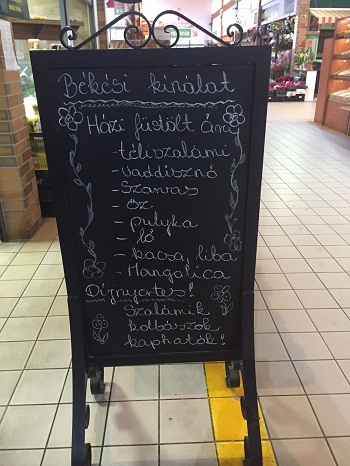 Békési kínálat
Házi füstölt áru
-téliszalámi
-vaddisznó
-Szarvas
- őz
- pulyka
- ló
- kacsa, liba
- Mangalica
Díjnyertes!
Szalámik
kolbászok
kaphatók!